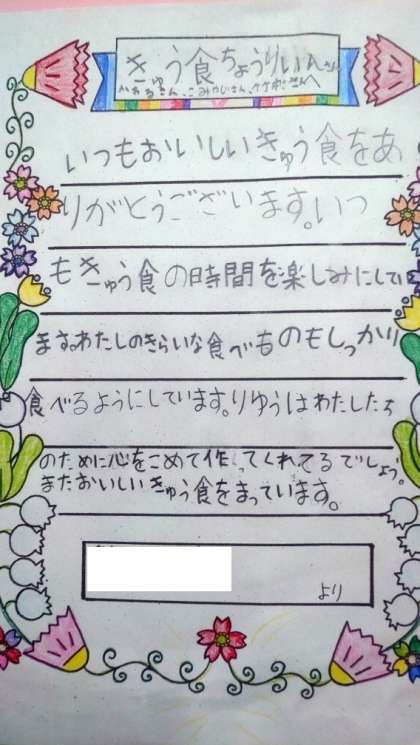 きゅう食ちょうりいんさん
かおるさん、こみかじさん、ケアおさんへ
いつもおいしいきゅう食をあ
りがとうございます。いつ
もきゅう食の時間を楽しみにしてい
ます。わたしのきらいな食べものもしっかり
食べるようにしています。りゆうはわたしたち
のために心をこめて作ってくれてるでしょう。
またおいしいきゅう食をまっています。
より